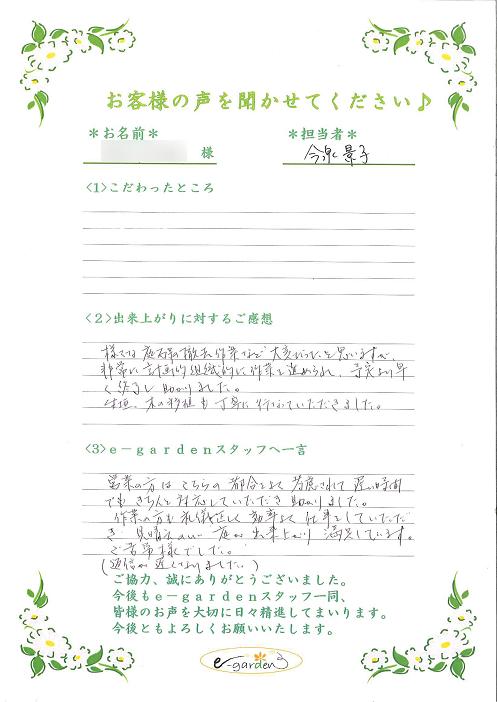 お客様の声を聞かせてください♪
*お名前* *担当者*
様 今泉 景子
<1>こだわったところ
<2>出来上がりに対するご感想
庭石等の撤去作業など大変だったと思いますが、
非常に計画的組織的に作業を進められ、予定より早
く終了し助かりました。
生垣、木の移植も丁寧に行っていただきました。
<3>e-gardenスタッフへ一言
営業の方はこちらの都合をよく考慮されて遅い時間
でもきちんと対応していただき助かりました。
作業の方も礼儀正しく効率よく仕事をしていただ
き 見晴えのいい庭が出来上がり満足しています。
ご苦労様でした。
(返信が遅くなりました。)
ご協力、誠にありがとうございました。
今後もe-gardenスタッフ一同、
皆様のお声を大切に日々精進してまいります。
今後ともよろしくお願いいたします。
e-garden